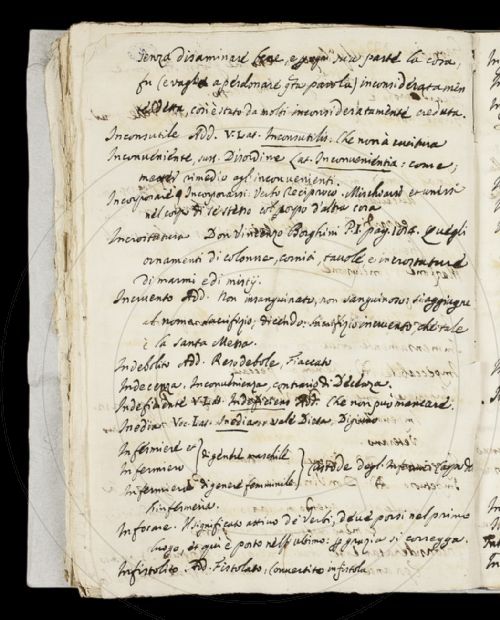 senza disaminare bene, e per sua parte la cosa,
fu (e vaglia a perdonare qta parola) inconsideratamen
te detta, così è stato da molti inconsideratamente creduta.
Inconsutile Add. V. Lat. Inconsutilis. Che non à cucitura
Inconueniente, sus. Disordine Lat. Inconuenientia: come;
metter rimedio agl'inconuenienti.
Incorporare Incorporarsi. Verbo Reciproco. Mischiarsi et unirsi
nel corpo di se stesso col corpo d'altra cosa
Incrostatura Don Vincenzo Borghini P. I. pag. 164. Quegli
ornamenti di colonne, cornici, tauole e incrostature
di marmi e di misti.
Incruento Add. Non insanguinato, non sanguinoso: si aggiugne
al nome sacrifizio; dicendo: sacrifizio incruento che tale
è la Santa Messa.
Indebolito Add. Reso debole, Fiaccato
Indecenza. Inconuenienza, contrario di Decenza.
Indefidente V. Lat. Indeficiens Add. Che non può mancare.
Inedia Voc. Lat. Inedia vale Dieta, Digiuno
Infermiere et
Infermiero } di genere maschile } Custode degl'Infermi: Capo de
Infermiera di genere femminile
l'infermeria.
Inforare. Il significato attiuo de' Verbi, deue porsi nel primo
luogo, et qui è posto nell'ultimo: per grazia si corregga.
Infistolito. Add. Fistolato, Conuertito in fistola